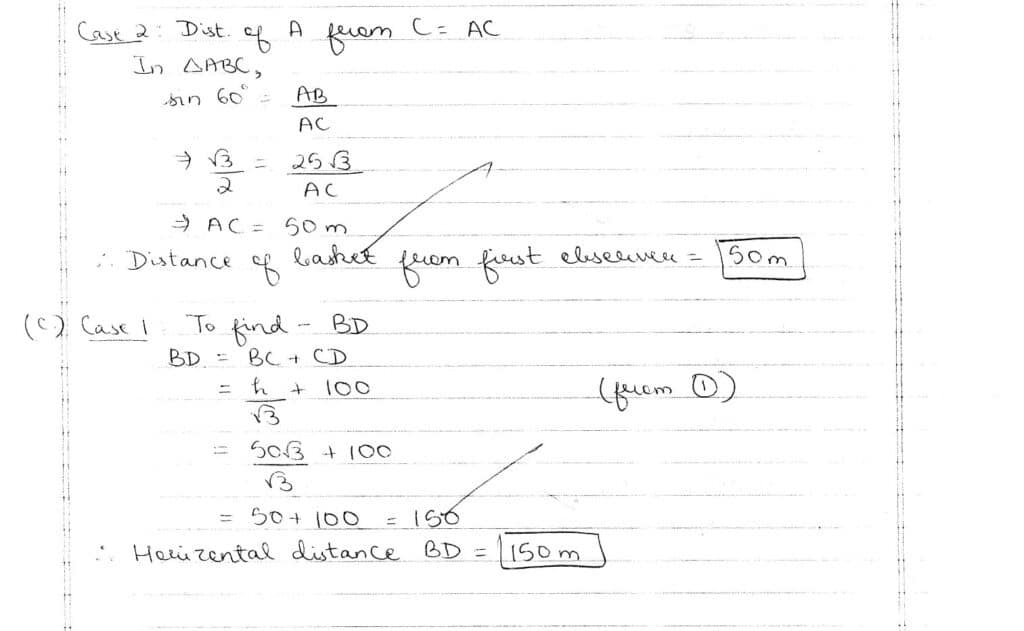 Case 2: Dist. of A from C = AC
In △ABC,
sin 60° = AB/AC
⇒ √3/2 = 25√3/AC
⇒ AC = 50 m
∴ Distance of basket from first observer = 50m
(c) Case 1 : To find - BD
BD = BC + CD
= h/√3 + 100 (from ①)
= 50√3/√3 + 100
= 50 + 100 = 150
∴ Horizental distance BD = 150 m